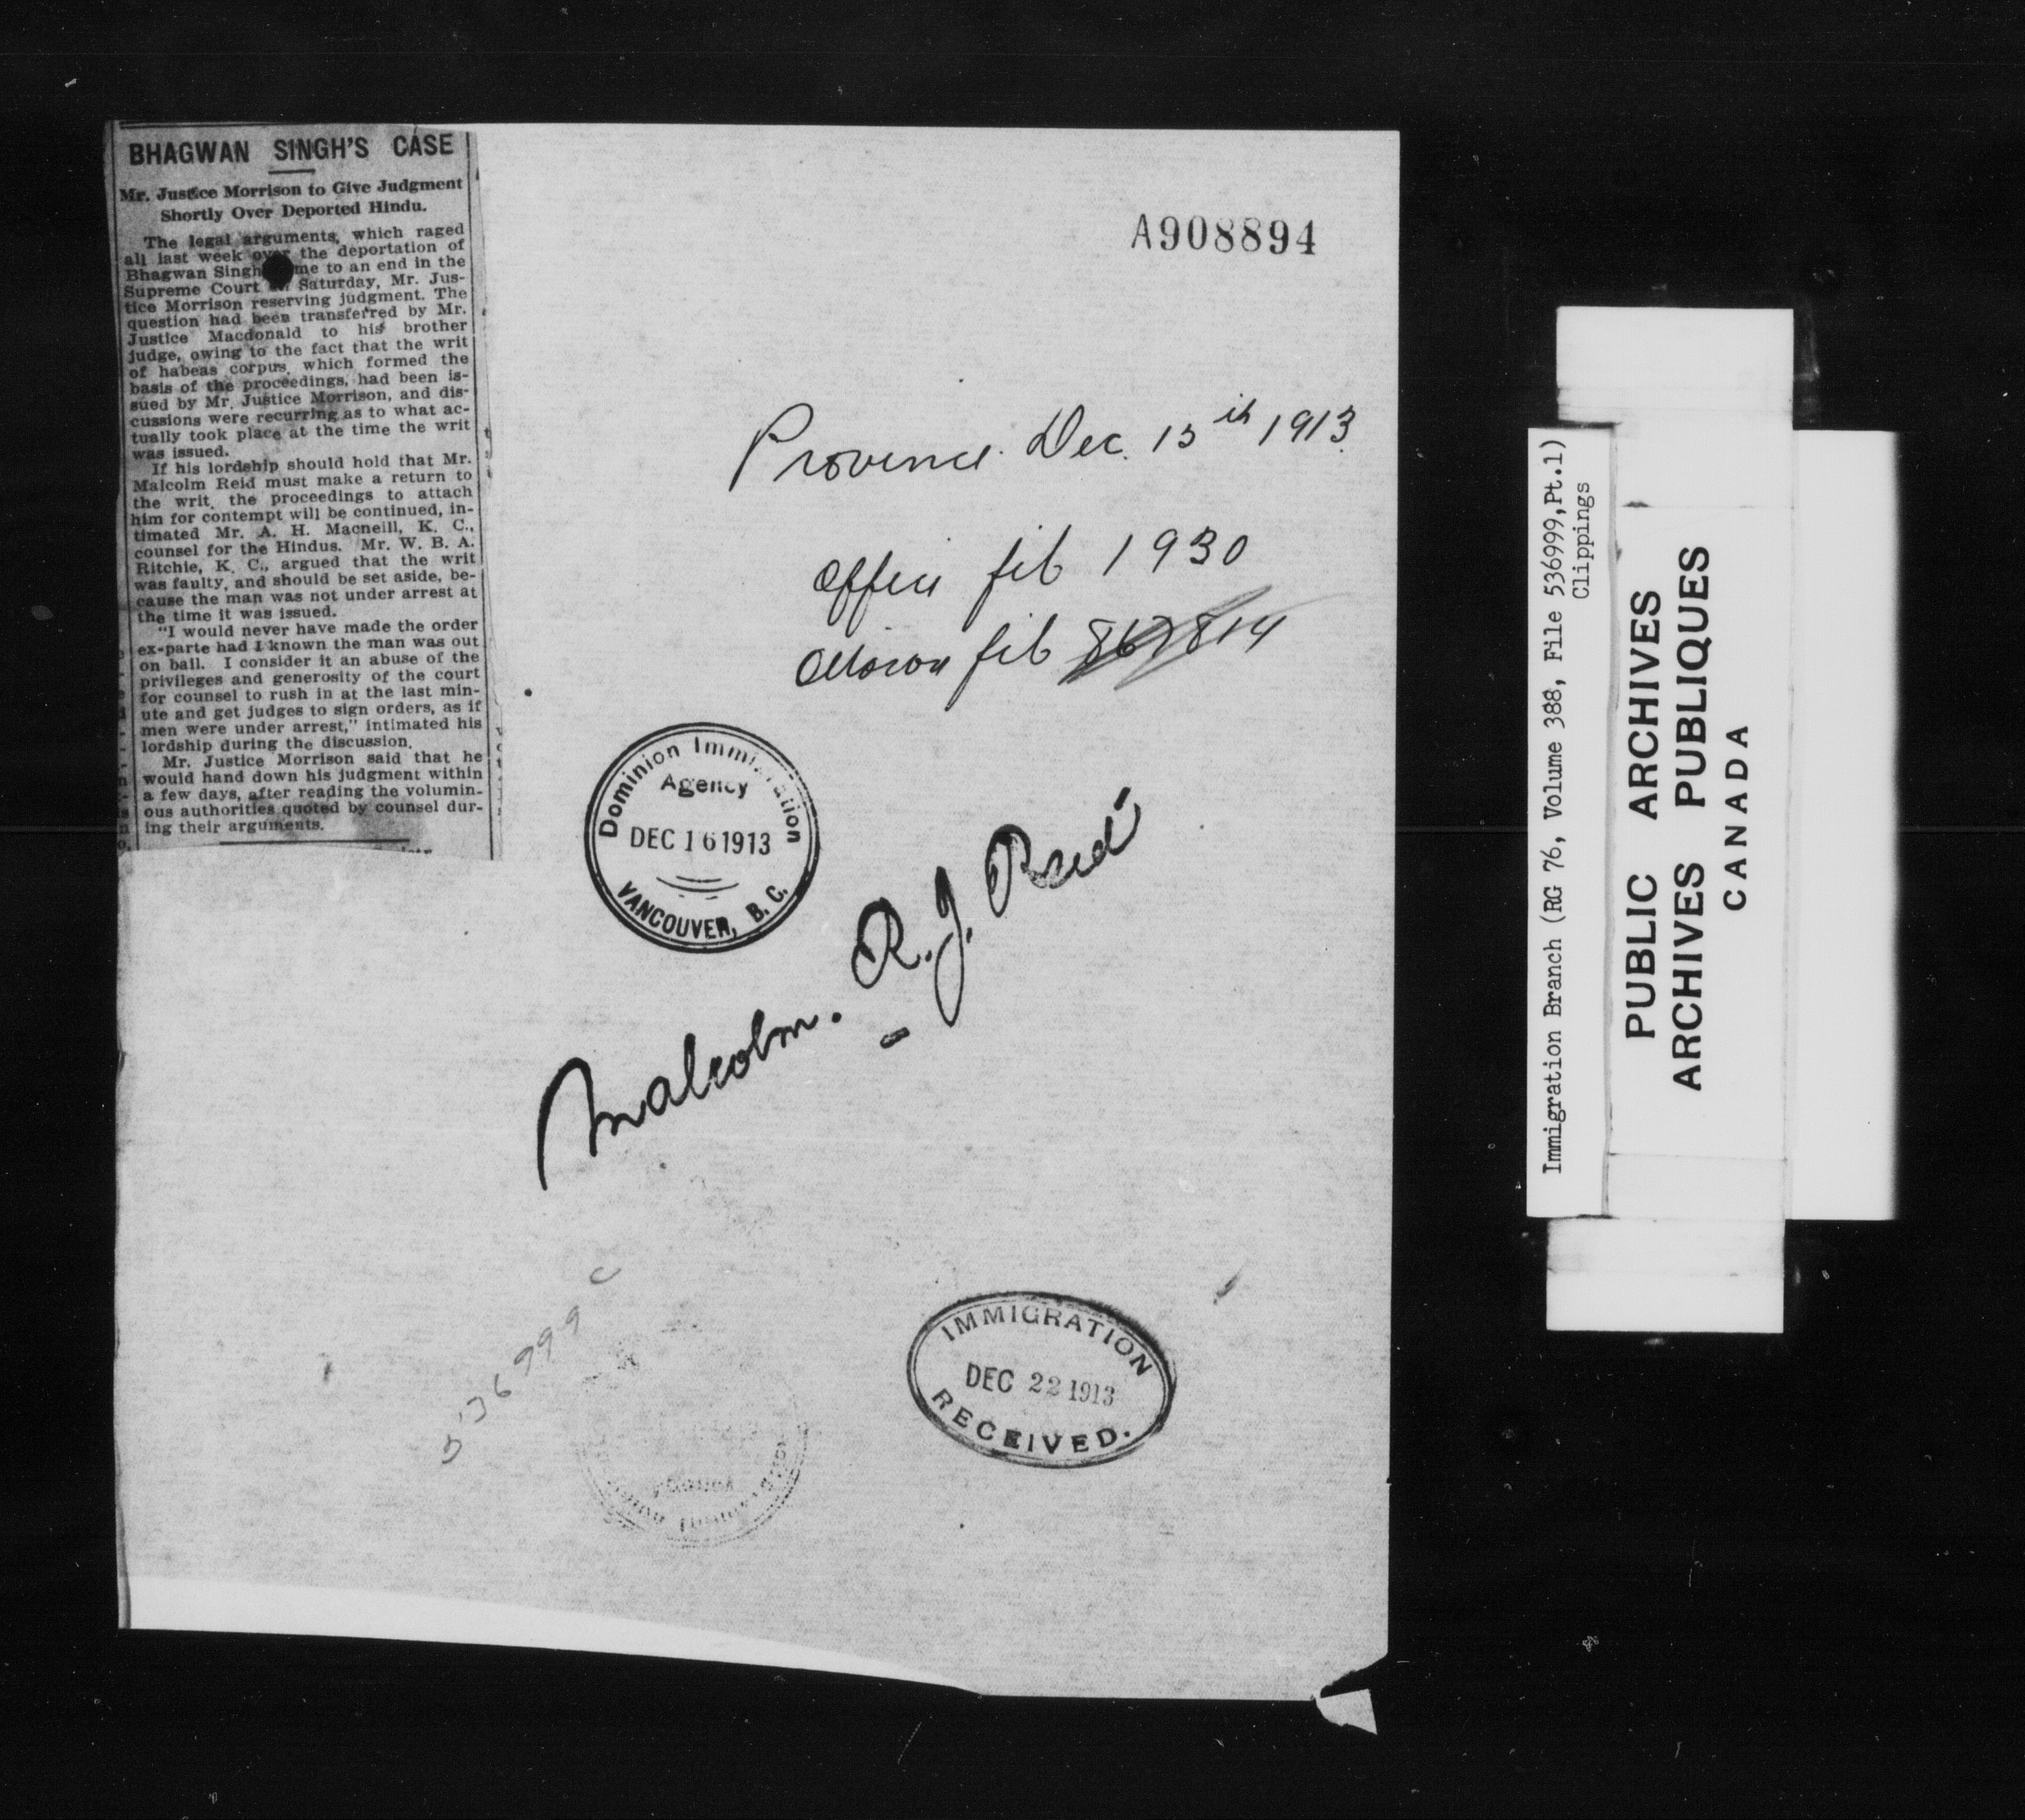 BHAGWAN SINGH'S CASE
Mr. Justice Morrison to Give Judgment
Shortly Over Deported Hindu.
The legal arguments, which raged
all last week over the deportation of
Bhagwan Singh me to an end in the
Supreme Court Saturday, Mr. Jus-
tice Morrison reserving judgment. The
question had been transferred by Mr.
Justice Macdonald to his brother
judge, owing to the fact that the writ
of habeas corpus, which formed the
basis of the proceedings, had been is-
sued by Mr. Justice Morrison, and dis-
cussions were recurring as to what ac-
tually took place at the time the writ
was issued.
If his lordship should hold that Mr.
Malcolm Reid must make a return to
the writ, the proceedings to attach
him for contempt will be continued, in-
timated Mr. A. H. Macneill, K. C.,
counsel for the Hindus. Mr. W. B. A.
Ritchie, K. C., argued that the writ
was faulty, and should be set aside, be-
cause the man was not under arrest at
the time it was issued.
"I would never have made the order
ex-parte had I known the man was out
on bail. I consider it an abuse of the
privileges and generosity of the court
for counsel to rush in at the last min-
ute and get judges to sign orders, as if
men were under arrest," intimated his
lordship during the discussion.
Mr. Justice Morrison said that he
would hand down his judgment within
a few days, after reading the volumin-
ous authorities quoted by counsel dur-
ing their arguments.
A908894
Province. Dec. 15th 1913.
Office file 1930
Ottawa file 867814
Dominion Immigration
Agency
DEC 16 1913
VANCOUVER, B. C.
Malcolm. R. J. Reid
536999 C
IMMIGRATION
DEC 22 1913
RECEIVED.
Immigration Branch (RG 76, Volume 388, File 536999,Pt.1)
Clippings
PUBLIC ARCHIVES
ARCHIVES PUBLIQUES
CANADA